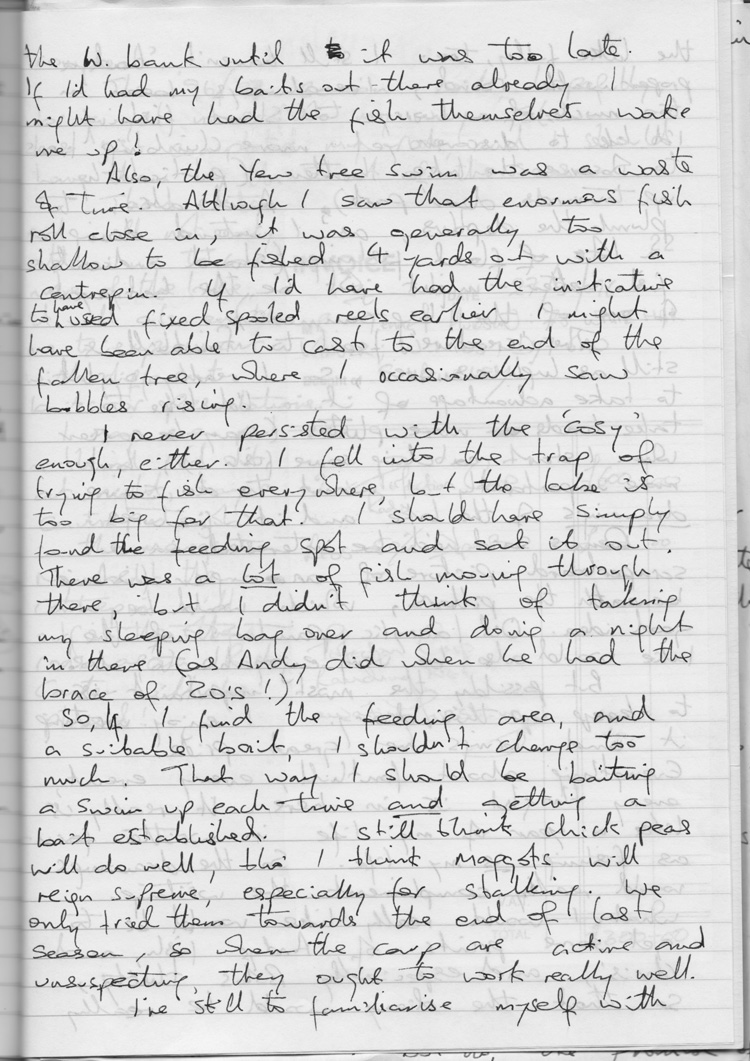 the W. bank until it was too late.
If I'd had my baits out there already I
might have had the fish themselves wake
me up!
Also, the Yew tree swim was a waste
of time. Although I saw that enormous fish
roll close in, it was generally too
shallow to be fished 4 yards out with a
centrepin. If I'd have had the initiative
to have used fixed spooled reels earlier I might
have been able to cast to the end of the
fallen tree, where I occasionally saw
bubbles rising.
I never persisted with the 'cosy'
enough, either. I fell into the trap of
trying to fish everywhere, but the lake is
too big for that. I should have simply
found the feeding spot and sat it out.
There was a lot of fish moving through
there, but I didn't think of taking
my sleeping bag over and doing a night
in there (as Andy did when he had the
brace of 20's!)
So, if I find the feeding area, and
a suitable bait, I shouldn't change too
much. That way I should be baiting
a swim up each time and getting a
bait established. I still think chick peas
will do well, tho' I think maggots will
reign supreme, especially for stalking. We
only tried them towards the end of last
season, so when the carp are active and
unsuspecting, they ought to work really well.
I've still to familiarise myself with